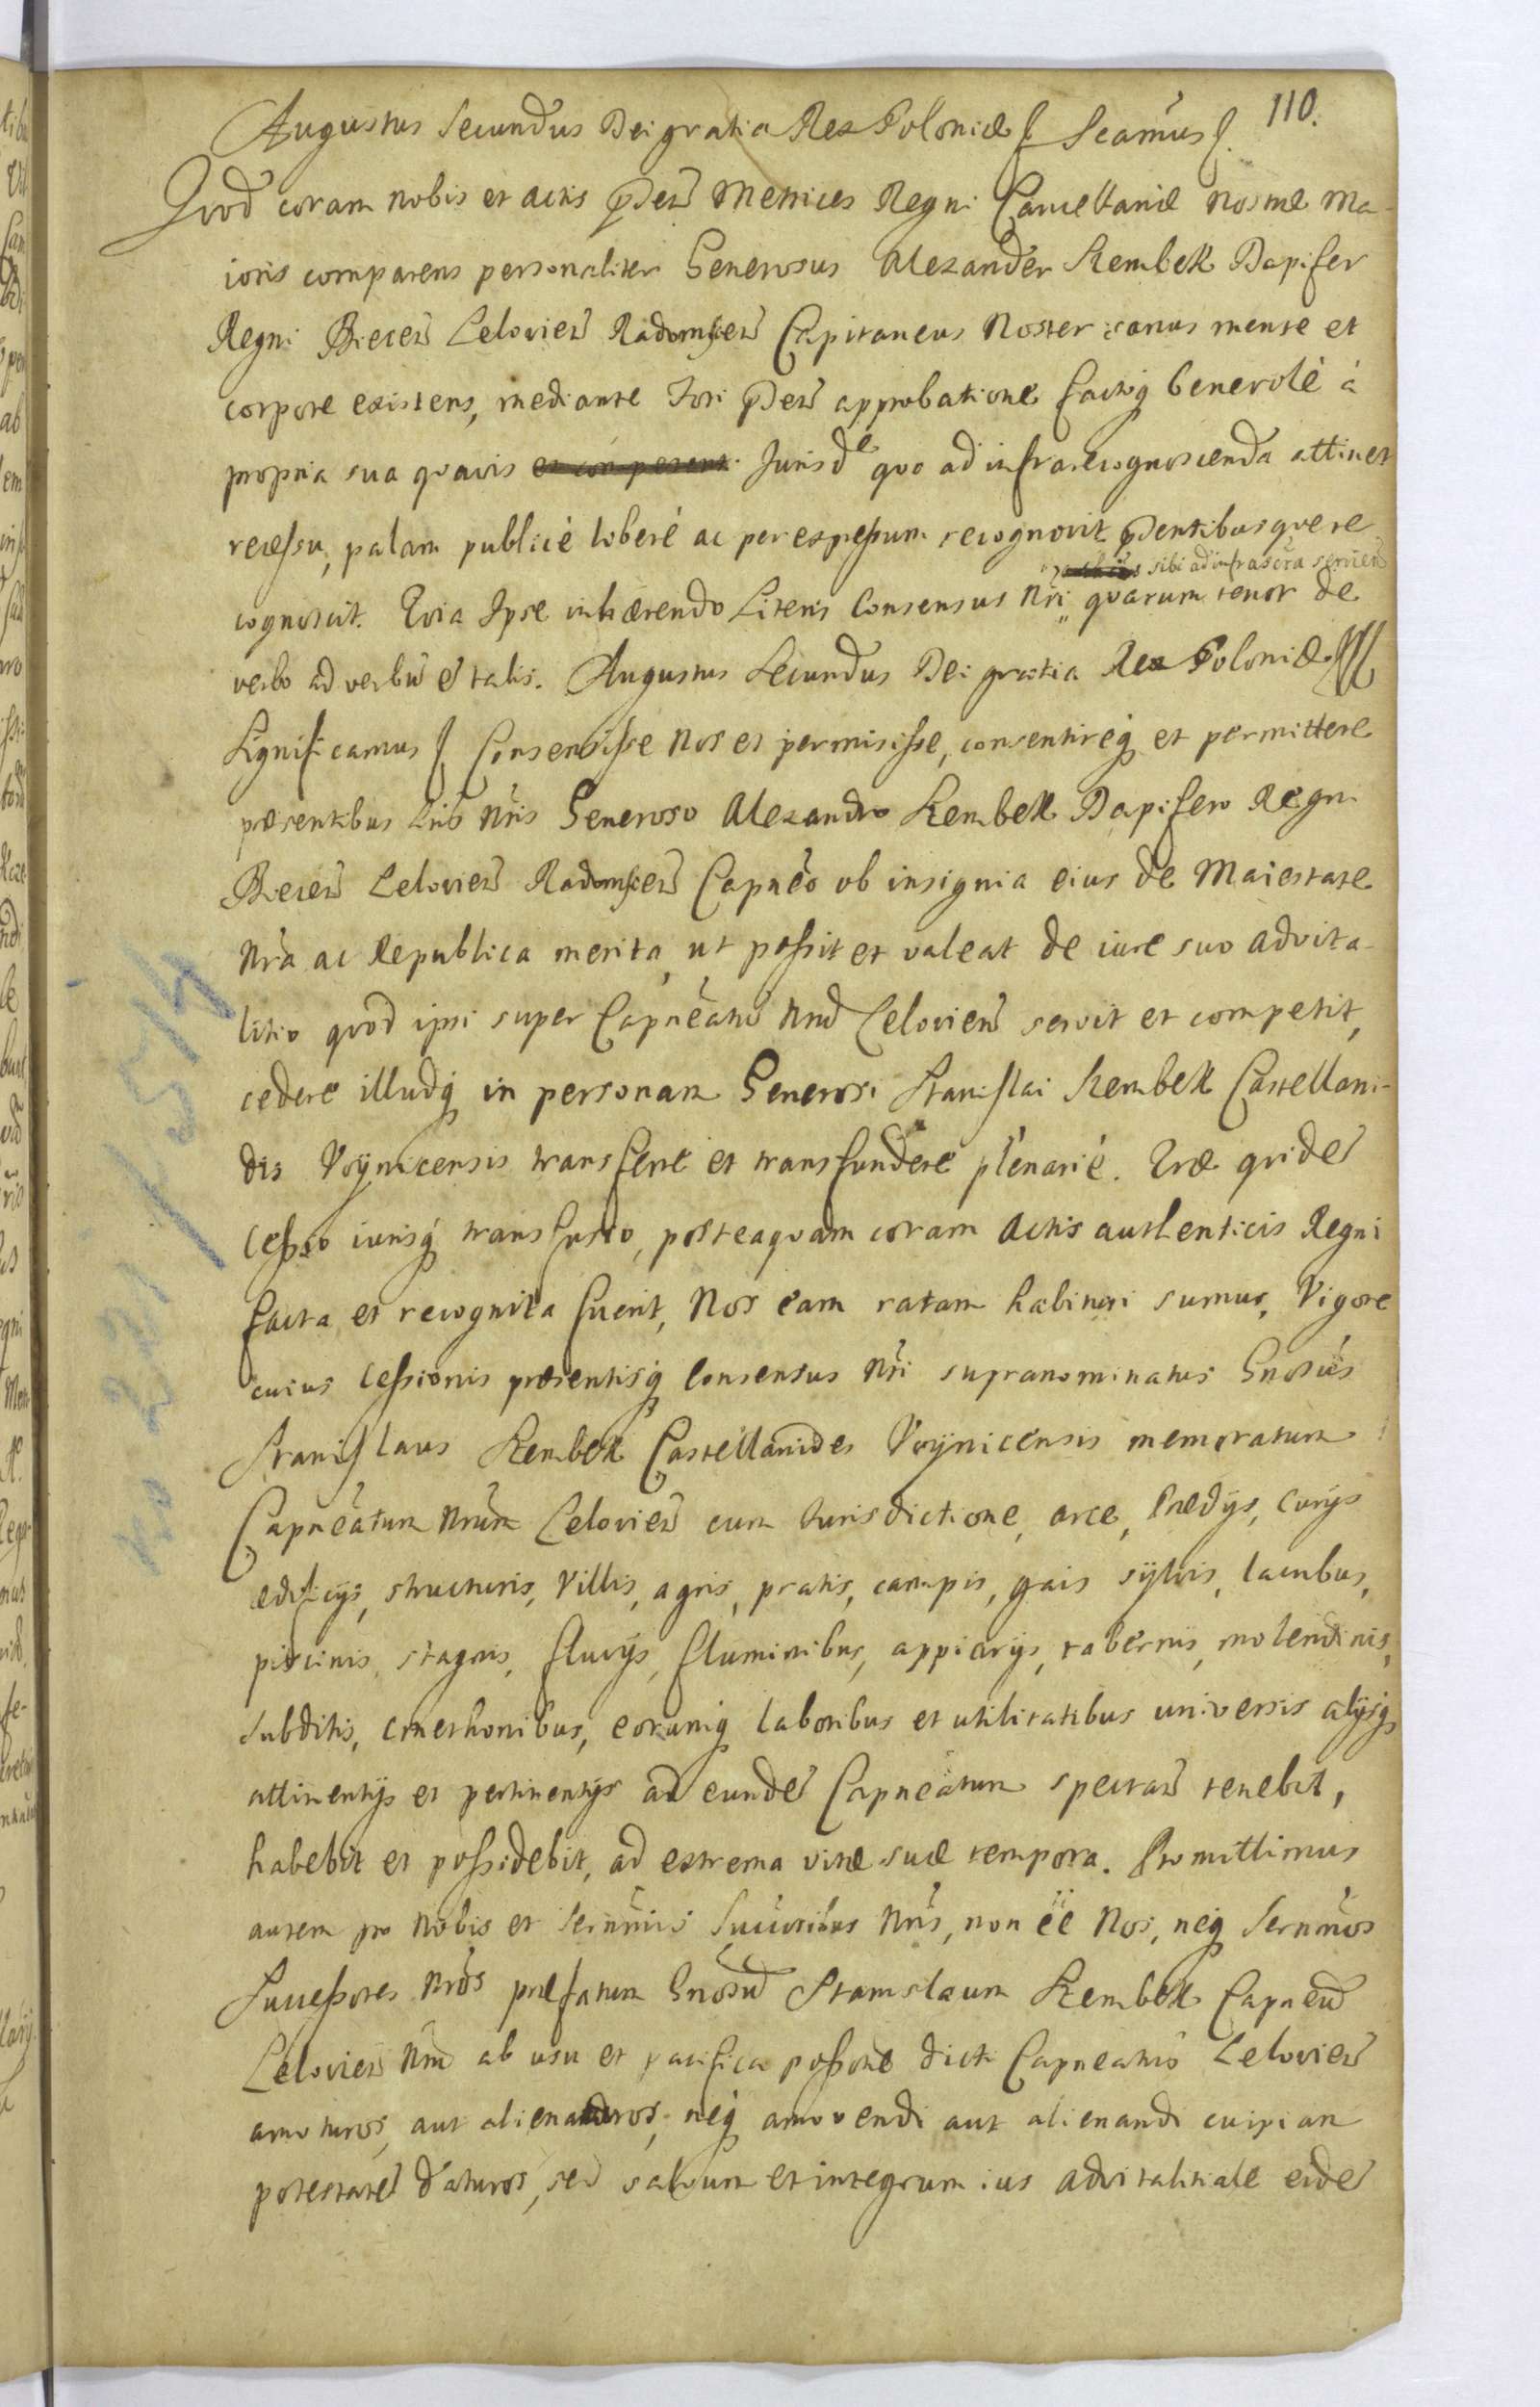 110.
Augustus Secundus Dei gratia Rex Poloniæ Scamus
Quod coram nobis et actis pñtibus Metrices Regni Cancellariæ Nostræ Ma-
ioris comparens personaliter Generosus Alexander Szembek Dapifer
Regni Biecen Leloviен Radomscen Capitaneus Noster sanus mente et
corpore existens, mediante Fori pñtis approbatione factaq benevolè à
propria sua quavis Jurisdᵉ quo ad infra recognoscenda attinet
recessu, palam publicè liberè ac per expressum recognovit pñtibusque re
sibi ad infrascra servien
cognoscit. Quia Ipse inhærendo Literis Consensus Nri quarum tenor de
verbo ad verbũ ẽ talis. Augustus Secundus Dei gratia Rex Poloniæ
Significamus Consensisse Nos et permisisse, consentireq et permittere
præsentibus Lris Nris Generoso Alexandro Szembek Dapifero Regni
Biecen Lelovien Radomscen Capneo ob insignia eius de Maiestate
Nra ac Republica merita, ut possit et valeat de iure suo advita-
litio quod ipsi super Capneatu Nro Lelovien servit et competit,
cedere illudq in personam Generosi Stanislai Szembek Castellani-
dis Voÿnicensis transferre et transfundere plenariè. Quæ quidẽ
Cessio iurisq transfusio, posteaquam coram Actis authenticis Regni
facta et recognita fuerit, Nos eam ratam habituri sumus, Vigore
cuius Cessionis præsentisq Consensus Nri supranominatus Gnosus
Stanislaus Szembek Castellanides Voÿnicensis memoratum
Capneatum Nrum Lelovien cum Iurisdictione, arce, Prædijs, Curijs
ædificijs, structuris, Villis, agris, pratis, campis, gais sÿlvis, lacubus,
piscinis, stagnis, fluvijs, fluminibus, appiarijs, tabernis, molendinis,
subditis, Cmethonibus, eorumq laboribus et utilitatibus universis alijsq
attinentijs et pertinentijs ad eundẽ Capneatum spectan tenebit,
habebit et possidebit, ad extrema vitæ suæ tempora. Promittimus
autem pro Nobis et Sernmis Succoribus Nris, non ẽẽ Nos, neq Sernmos
Successores Nros præfatum Gnosũ Stanislaum Szembek Capneũ
Lelovien Nrũ ab usu et pacifica possone dicti Capneatus Lelovien
amoturos, aut alienaturos, neq amovendi aut alienandi cuipiam
potestatẽ daturos, sed salvum et integrum ius advitalitiale eidẽ